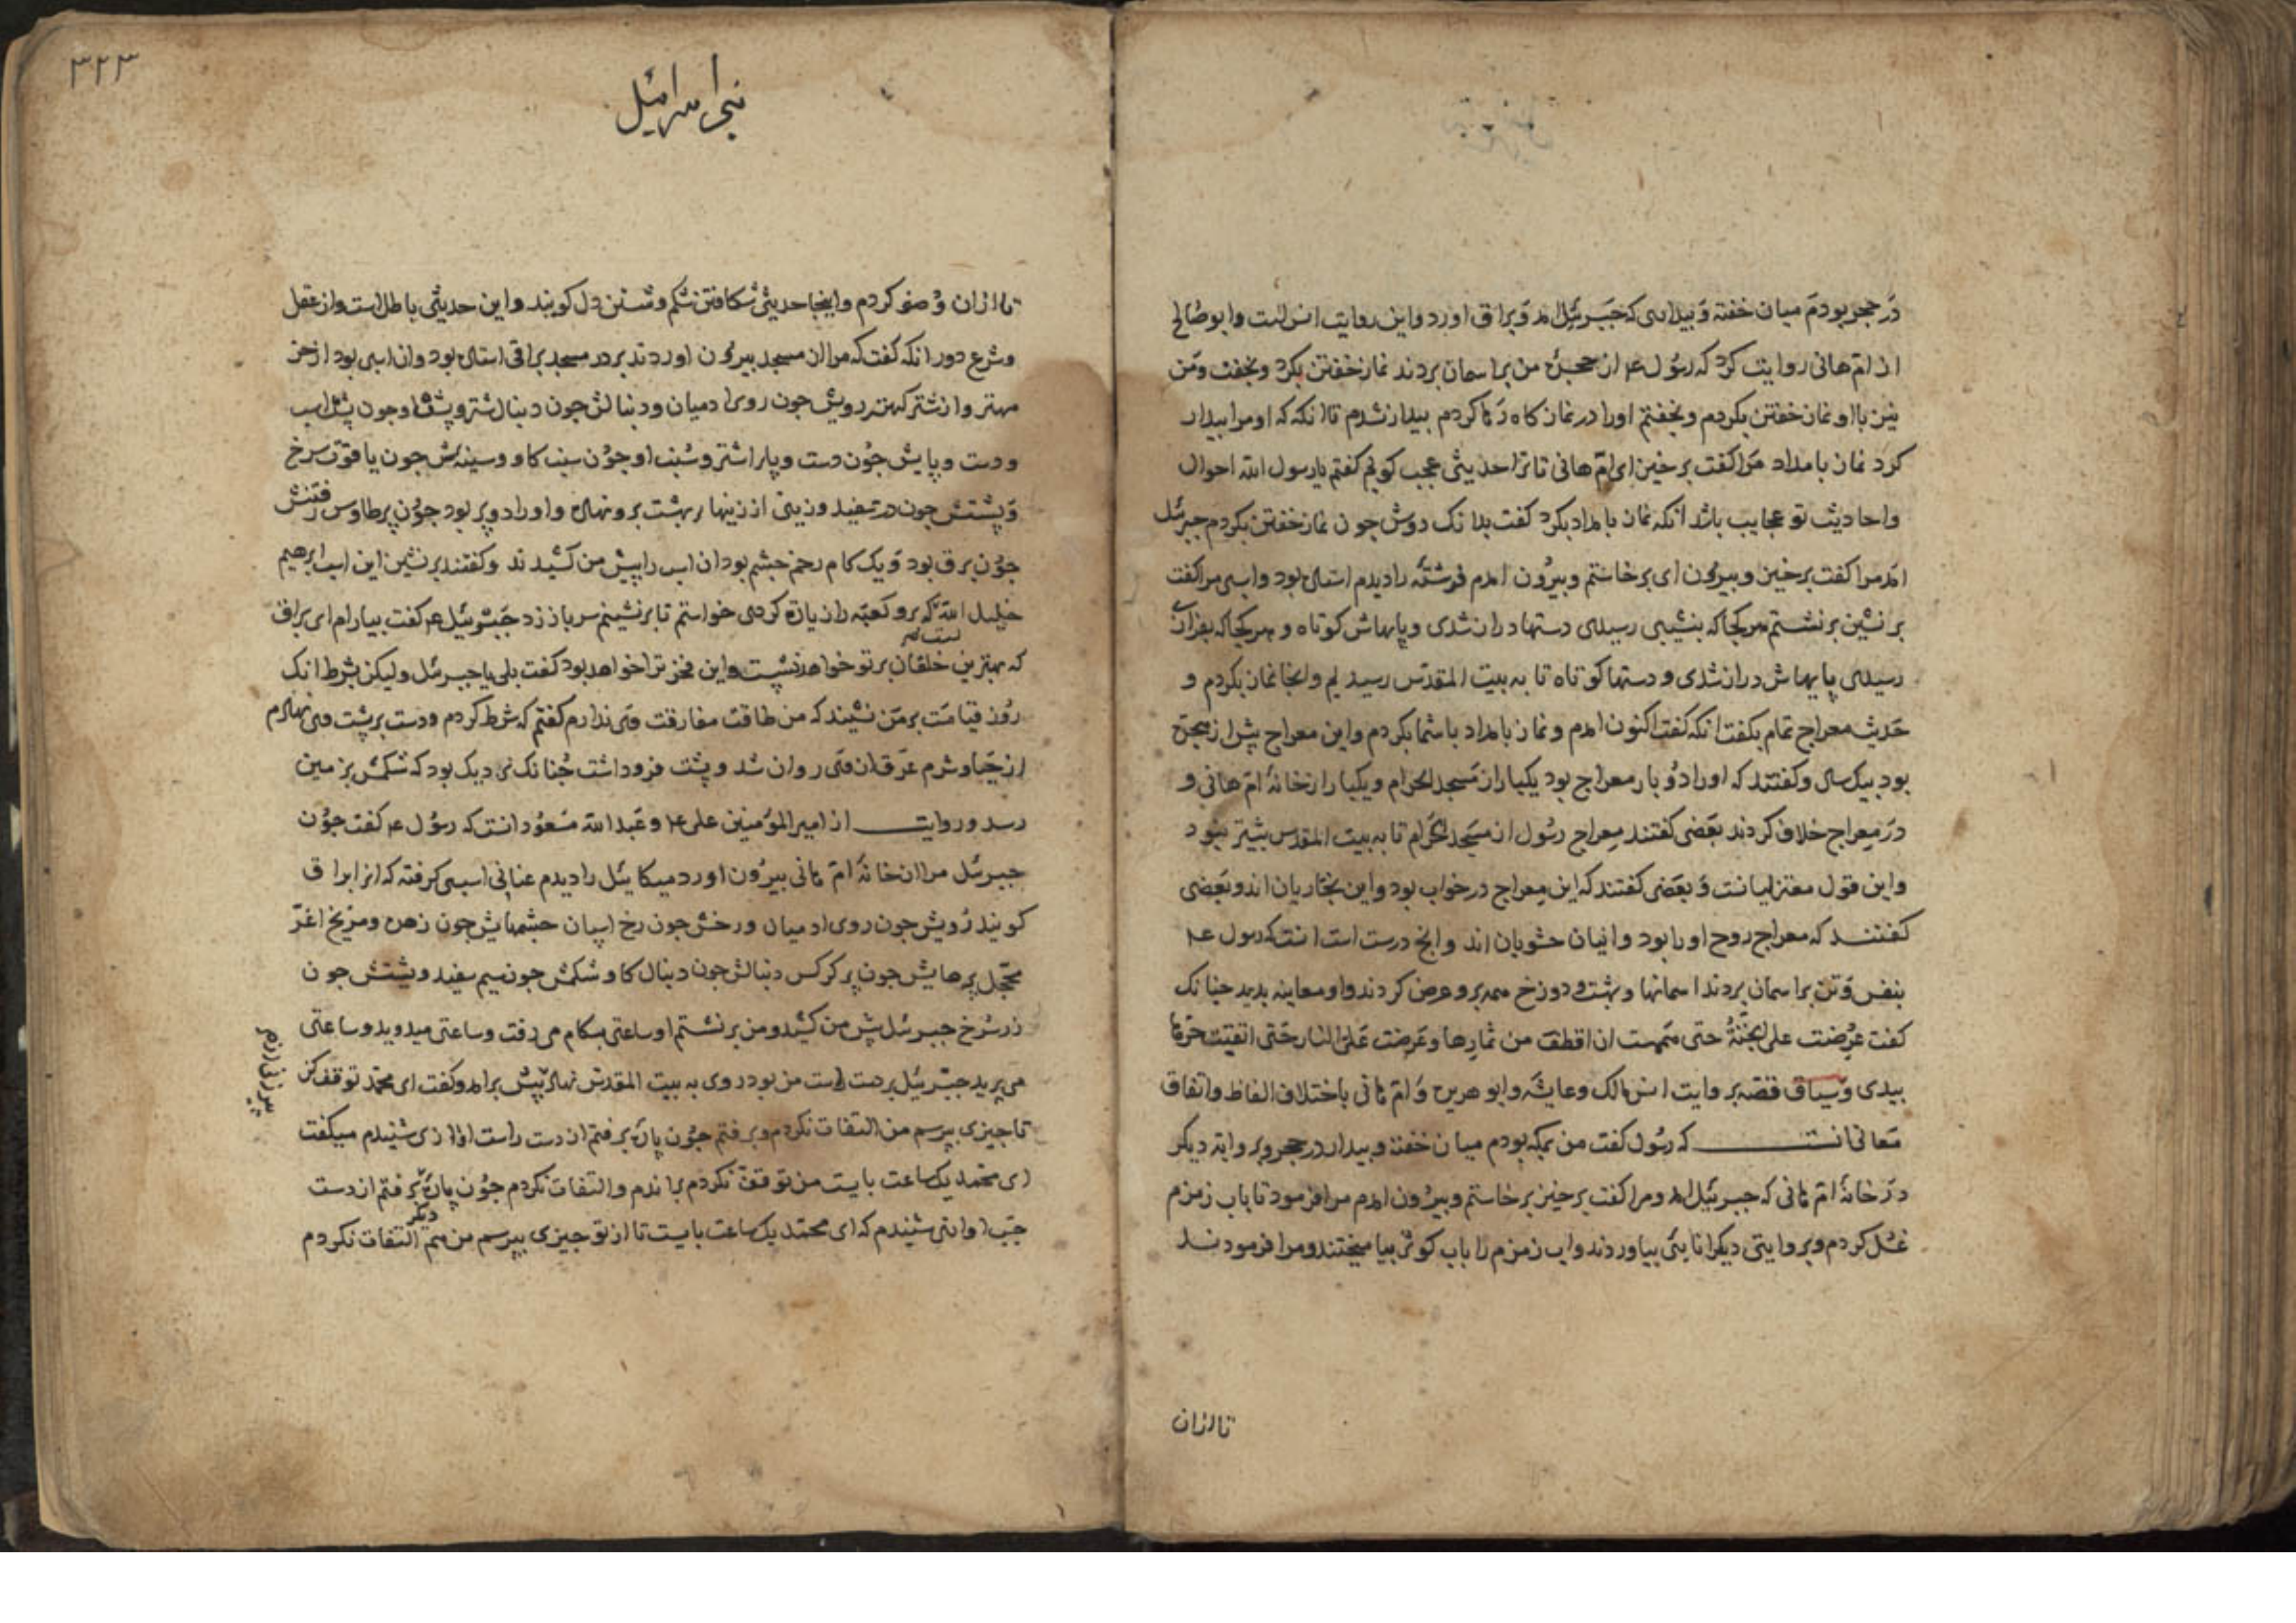 در حجر بودم میان خفته و بیدار که جبرئیل امد و براق اورد و این روایت انس است و ابو صالح
از ام هانی روایت کرد که رسول ع از حجرۀ من بر اسمان بردند نماز خفتن بکرد و بخفت و من
نیز با او نماز خفتن بکردم و بخفتم او را در نماز کاه رها کردم بیدار نشدم تا انکه که او مرا بیدار
کرد نماز بامداد مرا کفت برخیز ای ام هانی تا ترا حدیثی عجب کویم کفتم یا رسول الله احوال
و احادیث تو عجایب باشد انکه نماز بامداد بکرد کفت بدانک دوش جون نماز خفتن بکردم جبرئیل
امد مرا کفت برخیز و بیرون ای برخاستم و بیرون امدم فرشته را دیدم استاده بود و اسبی مرا کفت
بر نشین بر نشستم هر کجا که بنشیبی رسیدی دستها دراز شدی و پایهاش کوتاه و هر کجا که بفرازی
رسیدی پایهاش دراز شدی و دستها کوتاه تا به بیت المقدس رسیدیم و انجا نماز بکردم و
حدیث معراج تمام بکفت انکه کفت اکنون امدم و نماز بامداد با شما بکردم و این معراج پیش از هجرة
بود بیک سال و کفتند که او را دو بار معراج بود یکبار از مسجد الحرام و یکبار از خانۀ ام هانی و
در معراج خلاف کردند بعضی کفتند معراج رسول از مسجد الحرام تا به بیت المقدس بیشتر نبود
و این قول معتزلیانست و بعضی کفتند که این معراج در خواب بود و این نجاریان اند و بعضی
کفتند که معراج روح او را بود و اینان حشویان اند و انچ درست است انست که رسول ع
بنفس و تن بر اسمان بردند اسمانها و بهشت و دوزخ همه برو عرض کردند و او معاینه بدید جنانک
کفت عرضت علی الجنة حتی هممت ان اقطف من ثمارها و عرضت علی النار حتی اتقیت حرها
بیدی و سیاق قصه بروایت انس مالک و عایشه و ابو هریره و ام هانی باختلاف الفاظ و اتفاق
معانی انست که رسول کفت من بمکه بودم میان خفته و بیدار در حجر و بروایة دیکر
در خانۀ ام هانی که جبرئیل امد و مرا کفت برخیز برخاستم و بیرون امدم مرا فرمود تا باب زمزم
غسل کردم و بروایتی دیکر انایی بیاوردند و اب زمزم را باب کوثر بیامیختند و مرا فرمودند
تا ازان
۳۲۳
بنی اسرائیل
تا ازان وضو کردم و اینجا حدیثی شکافتن شکم و شستن دل کویند و این حدیثی باطل است و از عقل
و شرع دور انکه کفت که مرا از مسجد بیرون اوردند بر در مسجد براقی استاده بود و ان اسبی بود از خر
مهتر و از شتر کهتر رویش جون روی ادمیان و دنبالش جون دنبال شتر و پشت او جون پشت اسب
و دست و پایش جون دست و پای اشتر و سنب او جون سنب کاو و سینه‌ش جون یاقوت سرخ
و پشتش جون در سفید و زینی از زینهای بهشت برو نهاده و او را دو پر بود جون پر طاوس رفتنش
جون برق بود و یک کام زخم جشم بود ان اسب را پیش من کشیدند و کفتند بر نشین این اسب ابرهیم
خلیل الله که برو کعبه را زیارة کردی خواستم تا بر نشینم سر باز زد جبرئیل ع کفت بیارام ای براق
که بهترین خلقان بر تو خواهد نشست و این فخر ترا خواهد بود کفت بلی یا جبرئیل ولیکن بشرط انک
روز قیامت بر من نشیند که من طاقت مفارقت وی ندارم کفتم که شرط کردم و دست بر پشت وی نهادم
از حیا و شرم عرق از وی روان شد و پشت فرو داشت جنانک نزدیک بود که شکمش بزمین
رسد و روایت از امیر المؤمنین علی ع و عبد الله مسعود انست که رسول ع کفت جون
جبرئیل مرا از خانۀ ام هانی بیرون اورد میکائیل را دیدم عنانی اسبی کرفته که انرا براق
کویند رویش جون روی ادمیان و رخش جون رخ اسپان جشمهایش جون زهره و مریخ اغر
محجل پرهایش جون پر کرکس دنبالش جون دنبال کاو شکمش جون سیم سفید و پشتش جون
زر سرخ جبرئیل پیش من کشید و من بر نشستم او ساعتی بکام می رفت و ساعتی میدوید و ساعتی
می پرید جبرئیل بر دست راست من بود روی به بیت المقدس نهاد پیش برامد و کفت ای محمد توقف کن
تا جیزی بپرسم من التفات نکردم و برفتم جون پارۀ برفتم از دست راست اوازی شنیدم میکفت
ای محمد یک ساعت بایست من توقف نکردم براندم و التفات نکردم جون پارۀ دیکر برفتم از دست
جب اوازی شنیدم که ای محمد یک ساعت بایست تا از تو جیزی بپرسم من هم التفات نکردم